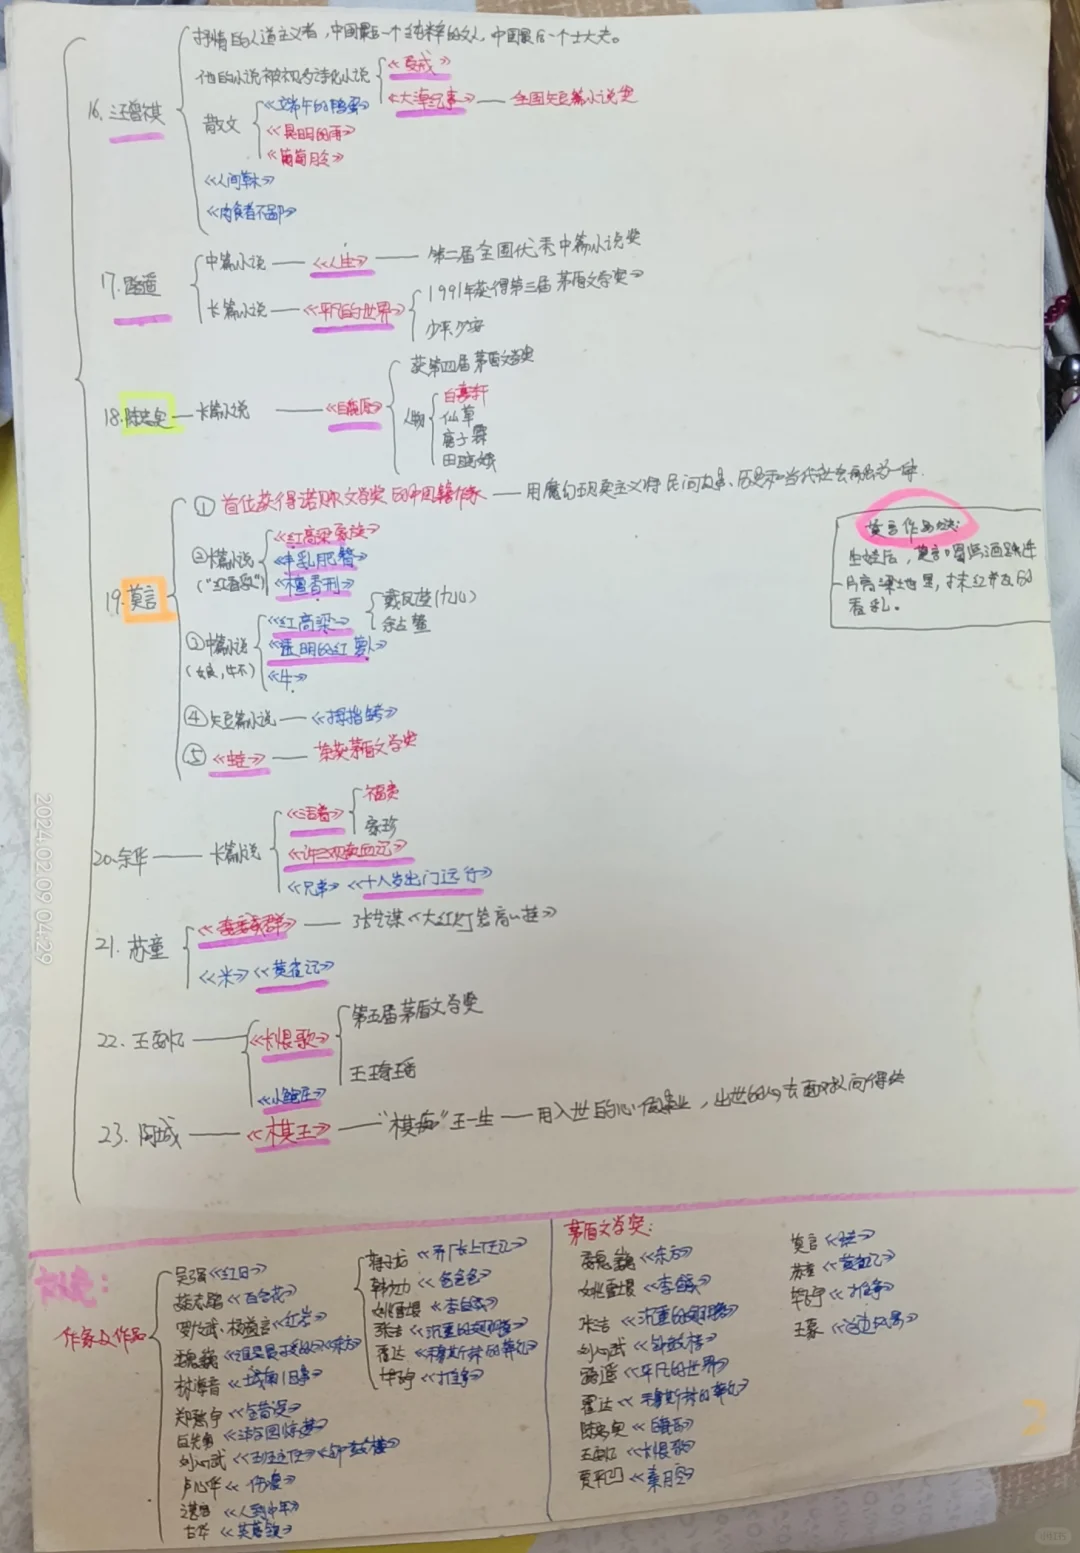 16.汪曾祺
抒情的人道主义者，中国最后一个纯粹的文人，中国最后一个士大夫。
他的小说被视为诗化小说
《受戒》
《大淖纪事》——全国短篇小说奖
散文
《端午的鸭蛋》
《昆明的雨》
《葡萄月令》
《人间草木》
《肉食者不鄙》
17.路遥
中篇小说——《人生》——第二届全国优秀中篇小说奖
长篇小说——《平凡的世界》
1991年获得第三届茅盾文学奖
少平、少安
18.陈忠实—长篇小说——《白鹿原》
获第四届茅盾文学奖
人物
白嘉轩
仙草
鹿子霖
田晓娥
19.莫言
①首位获得诺贝尔文学奖的中国籍作家——用魔幻现实主义将民间故事、历史和当代社会融为一体.
②长篇小说
("红香乳")
《红高粱家族》
《丰乳肥臀》
《檀香刑》
③中篇小说
《红高粱》
戴凤莲(九儿)
余占鳌
《透明的红萝卜》
《牛》
④短篇小说——《拇指铐》
⑤《蛙》——荣获茅盾文学奖
莫言作品
生蛙后，莫言喝醉酒跌进
一片高粱地里，
看乳。
20.余华——长篇小说
《活着》
福贵
家珍
《许三观卖血记》
《兄弟》《十八岁出门远行》
21.苏童
《妻妾成群》——张艺谋《大红灯笼高高挂》
《米》《黄雀记》
22.王安忆
《长恨歌》
第五届茅盾文学奖
王琦瑶
《小鲍庄》
23.阿城——《棋王》——"棋痴"王一生——用入世的心做事业，出世的心去面对人间得失
作家及作品
吴强《红日》
茹志鹃《百合花》
罗广斌、杨益言《红岩》
魏巍《谁是最可爱的人》《东方》
林海音《城南旧事》
郑愁予《错误》
白先勇《游园惊梦》
刘心武《班主任》《钟鼓楼》
卢新华《伤痕》
谌容《人到中年》
古华《芙蓉镇》
蒋子龙《乔厂长上任记》
韩少功《爸爸爸》
姚雪垠《李自成》
张洁《沉重的翅膀》
霍达《穆斯林的葬礼》
毕宇《推拿》
茅盾文学奖：
魏巍《东方》
姚雪垠《李自成》
张洁《沉重的翅膀》
刘心武《钟鼓楼》
路遥《平凡的世界》
霍达《穆斯林的葬礼》
陈忠实《白鹿原》
王安忆《长恨歌》
贾平凹《秦腔》
莫言《蛙》
苏童《黄雀记》
毕宇《推拿》
王蒙《这边风景》
2
2024.02.09 04:29
小红书